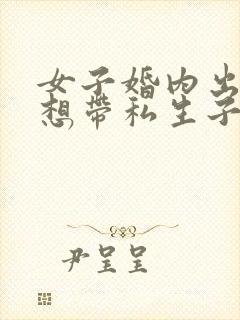 女子婚内出
想帶私生子
尹呈呈